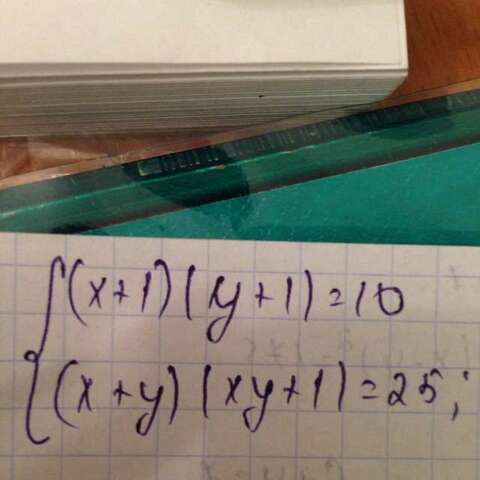 (x+1)(y+1)=10
(x+y)(xy+1)=25;